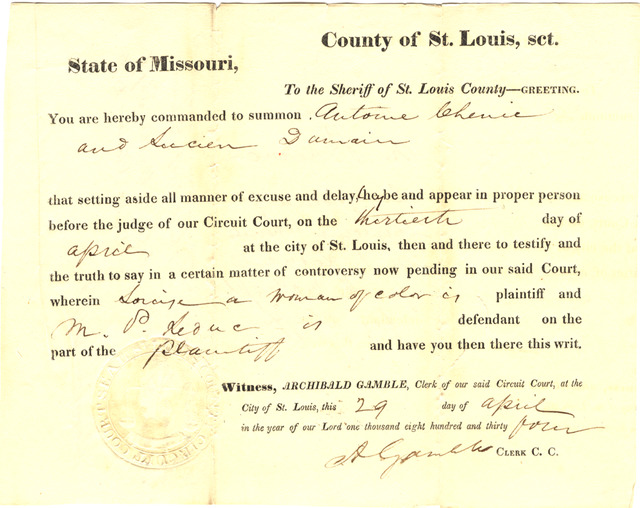 County of St. Louis, sct.
State of Missouri,
To the Sheriff of St. Louis County—GREETING.
You are hereby commanded to summon Antoine Chenie
and Lucien Dumain
that setting aside all manner of excuse and delay, they be and appear in proper person
before the judge of our Circuit Court, on the thirtieth day of
april at the city of St. Louis, then and there to testify and
the truth to say in a certain matter of controversy now pending in our said Court,
wherein Louise a woman of color is plaintiff and
M. P. Leduc is defendant on the
part of the plaintiff and have you then there this writ.
Witness, ARCHIBALD GAMBLE, Clerk of our said Circuit Court, at the
City of St. Louis, this 29 day of april
in the year of our Lord one thousand eight hundred and thirty four
A Gamble CLERK C. C.